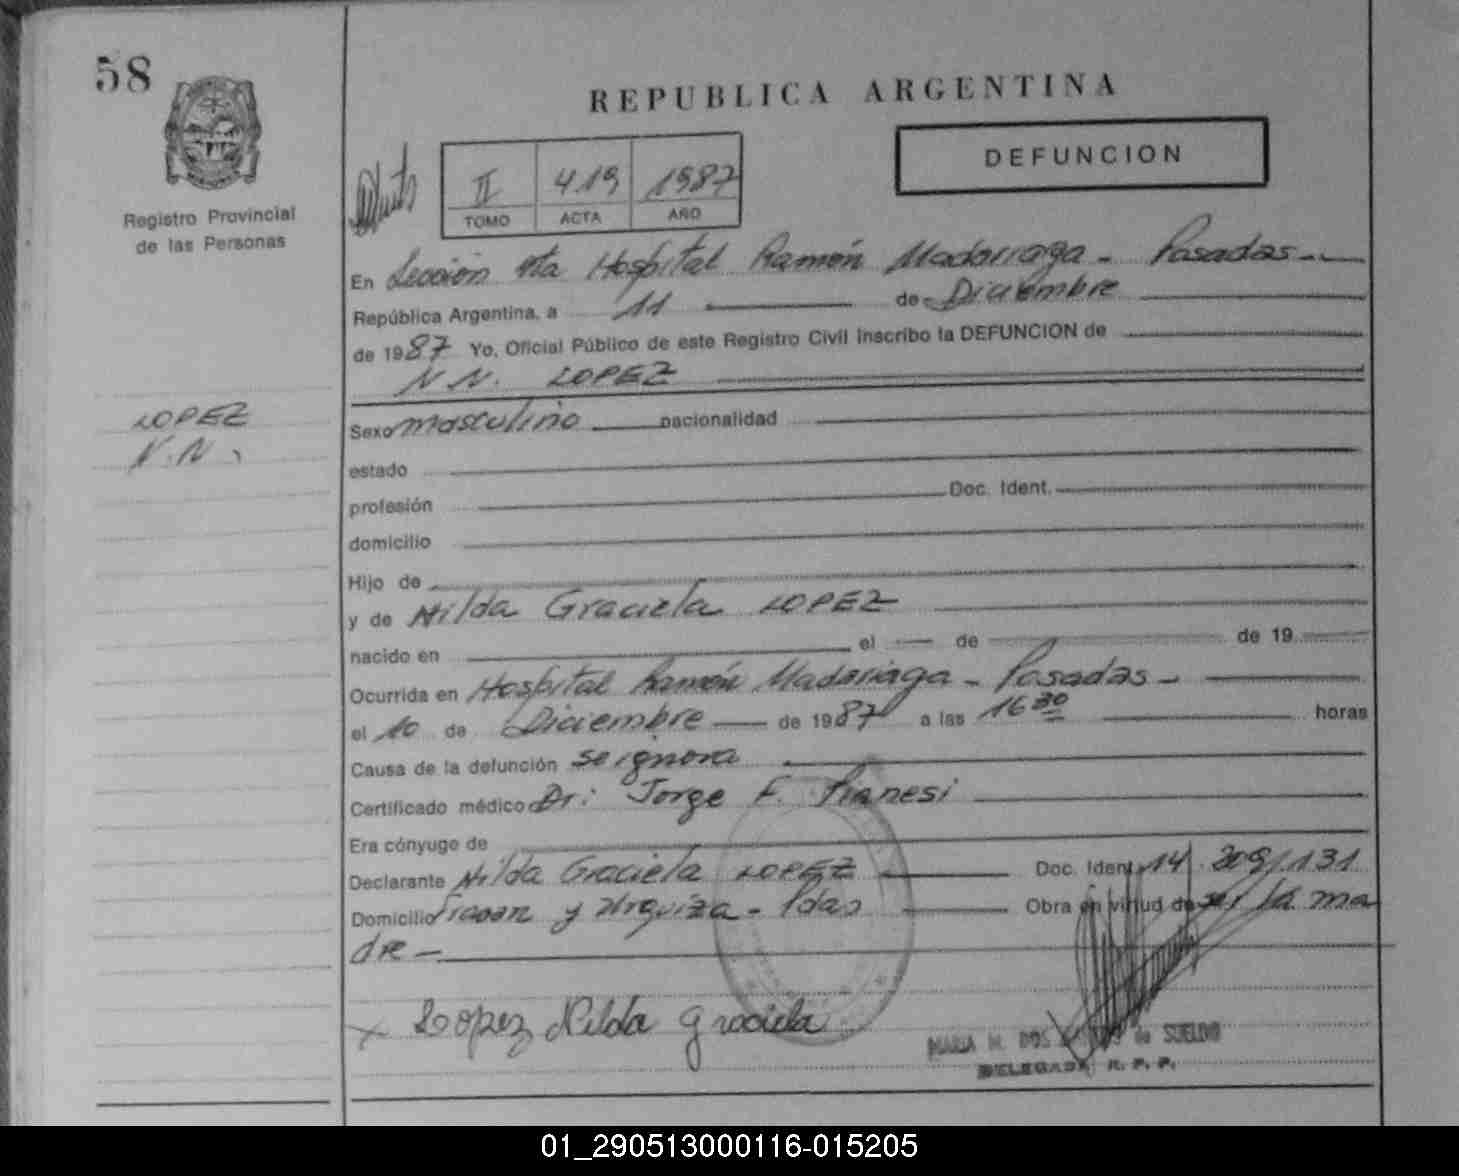 58
REPUBLICA ARGENTINA
DEFUNCION
Registro Provincial
de las Personas
II 419 1987
TOMO ACTA AÑO
En Sección 4ta Hospital Ramón Madariaga - Posadas -
República Argentina, a 11 de Diciembre
de 1987 Yo, Oficial Público de este Registro Civil inscribo la DEFUNCION de
N.N. LOPEZ
LOPEZ
N.N.
Sexo masculino nacionalidad
estado
profesión Doc. Ident.
domicilio
Hijo de
y de Nilda Graciela LOPEZ
nacido en el de de 19
Ocurrida en Hospital Ramón Madariaga - Posadas -
el 10 de Diciembre de 1987 a las 16 30 horas
Causa de la defunción se ignora
Certificado médico Dr: Jorge F. Pianesi
Era cónyuge de
Declarante Nilda Graciela LOPEZ Doc. Ident. 14.309.131
Domicilio y Urquiza - Pdas Obra en virtud de ser la ma
dre -
x Lopez Nilda Graciela
MARIA M. DOS de SUELDO
DELEGADA R. P. P.
01_290513000116-015205